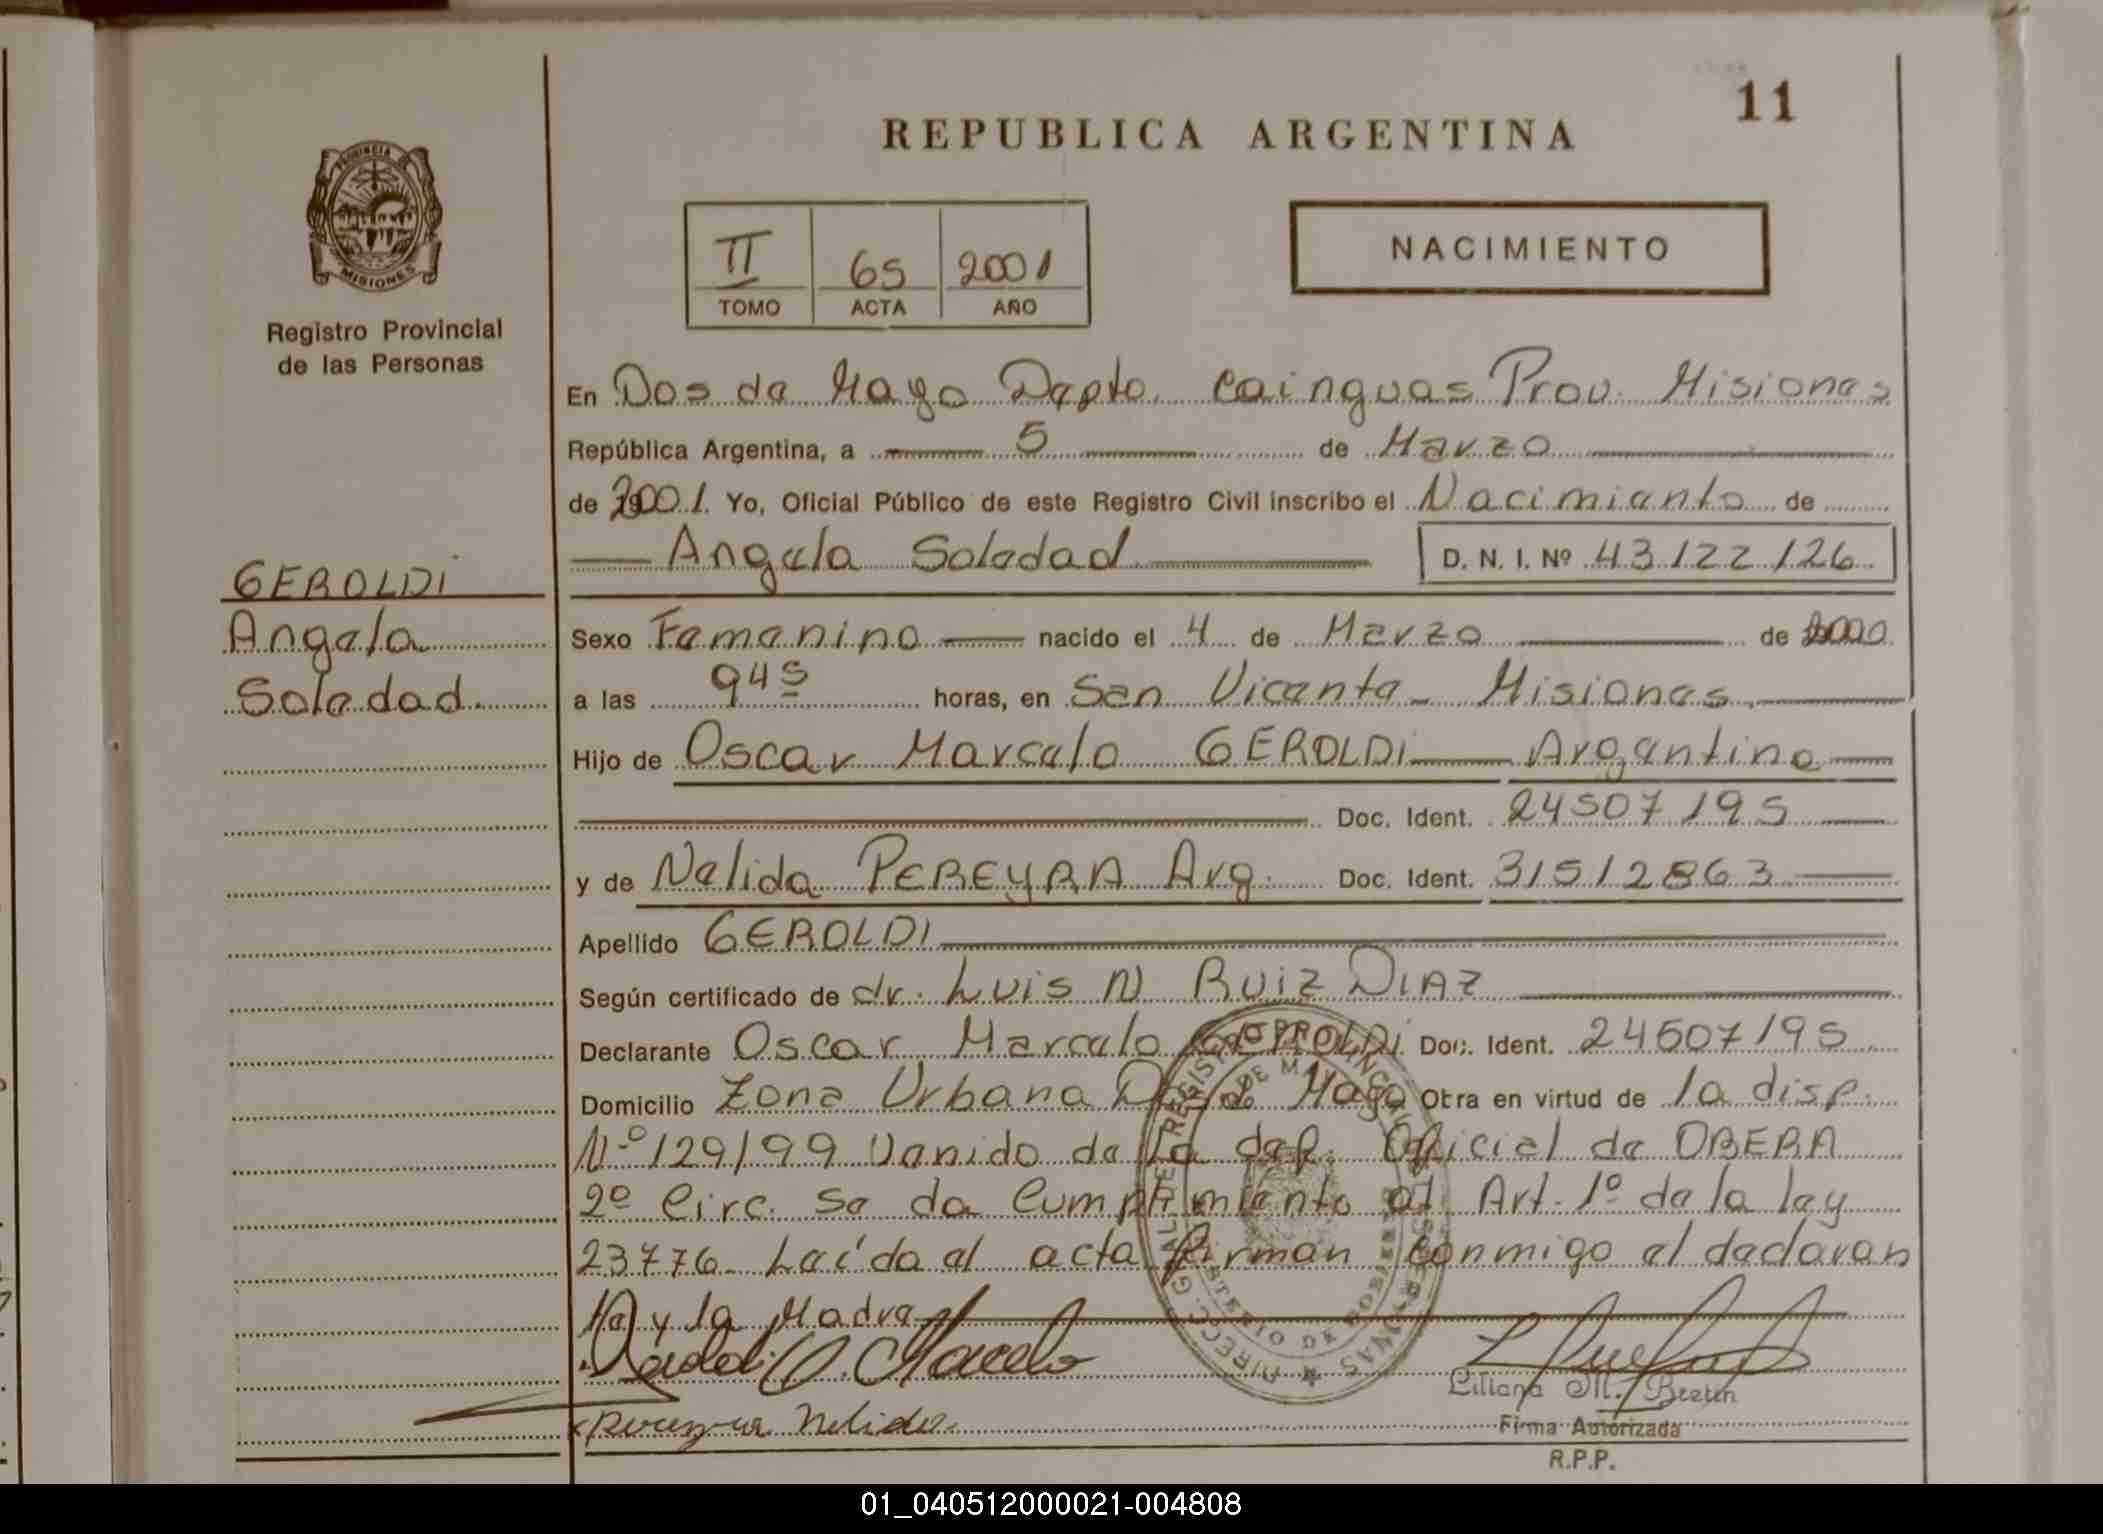 11
REPUBLICA ARGENTINA
PROVINCIA
MISIONES
Registro Provincial
de las Personas
II 65 2001
TOMO ACTA AÑO
NACIMIENTO
En Dos de Mayo Depto. Cainguas Prov. Misiones
República Argentina, a 5 de Marzo
de 2001. Yo, Oficial Público de este Registro Civil inscribo el Nacimiento de
Angela Soledad D. N. I. Nº 43.122.126
GEROLDI
Angela
Soledad
Sexo Femenino nacido el 4 de Marzo de 2000
a las 945 horas, en San Vicente - Misiones
Hijo de Oscar Marcelo GEROLDI Argentino
Doc. Ident. 24507195
y de Nelida PEREYRA Arg. Doc. Ident. 31512863
Apellido GEROLDI
Según certificado de dr. Luis N RUIZ DIAZ
Declarante Oscar Marcelo GEROLDI Doc. Ident. 24507195
Domicilio Zona Urbana D. de Mayo Otra en virtud de la disp.
Nº 129/99 Venido de la del. Oficial de OBERA
2º Circ. Se da Cumplimiento al Art. 1º de la ley
23776. Leída el acta firman conmigo el declaran
te y la Madre
Geroldi O. Marcelo
x Pereyra Nelida.
Liliana M. Bretin
Firma Autorizada
R.P.P.
01_040512000021-004808